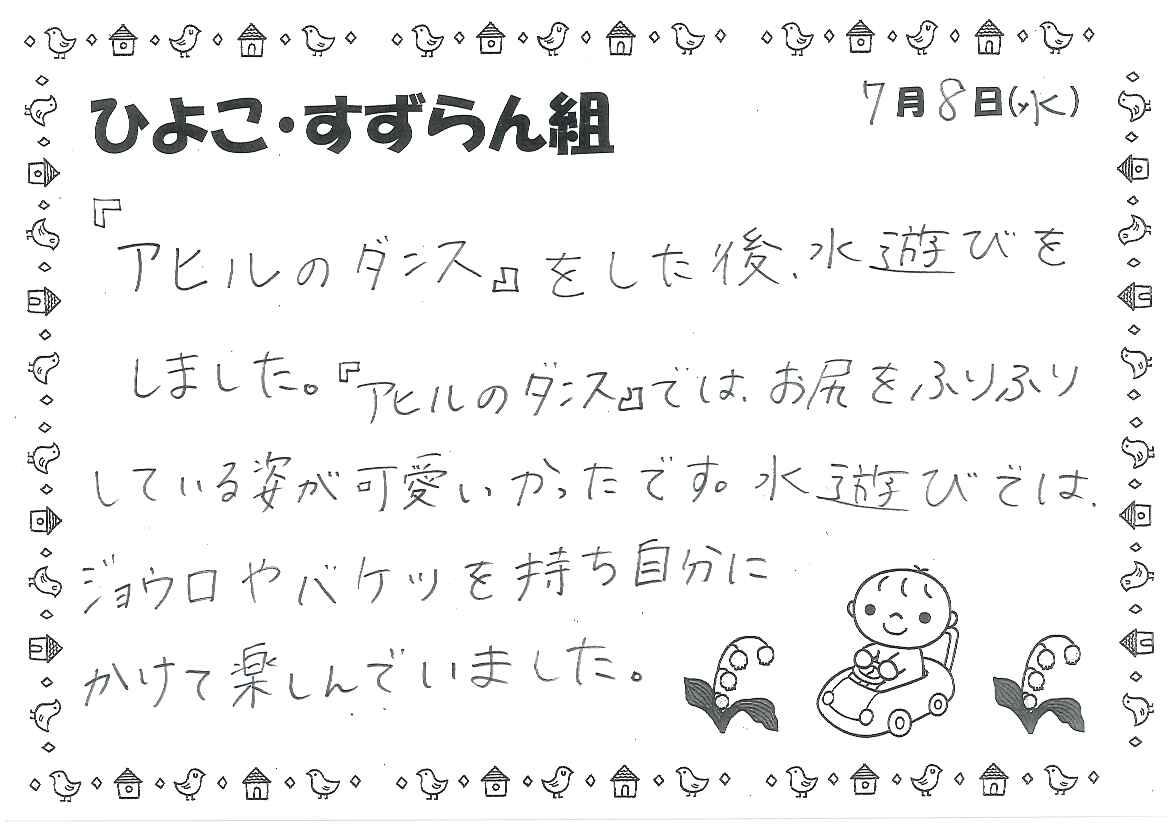 ひよこ・すずらん組
7月8日(水)
『アヒルのダンス』をした後、水遊びを
しました。『アヒルのダンス』では、お尻をふりふり
している姿が可愛いかったです。水遊びでは、
ジョウロやバケツを持ち自分に
かけて楽しんでいました。